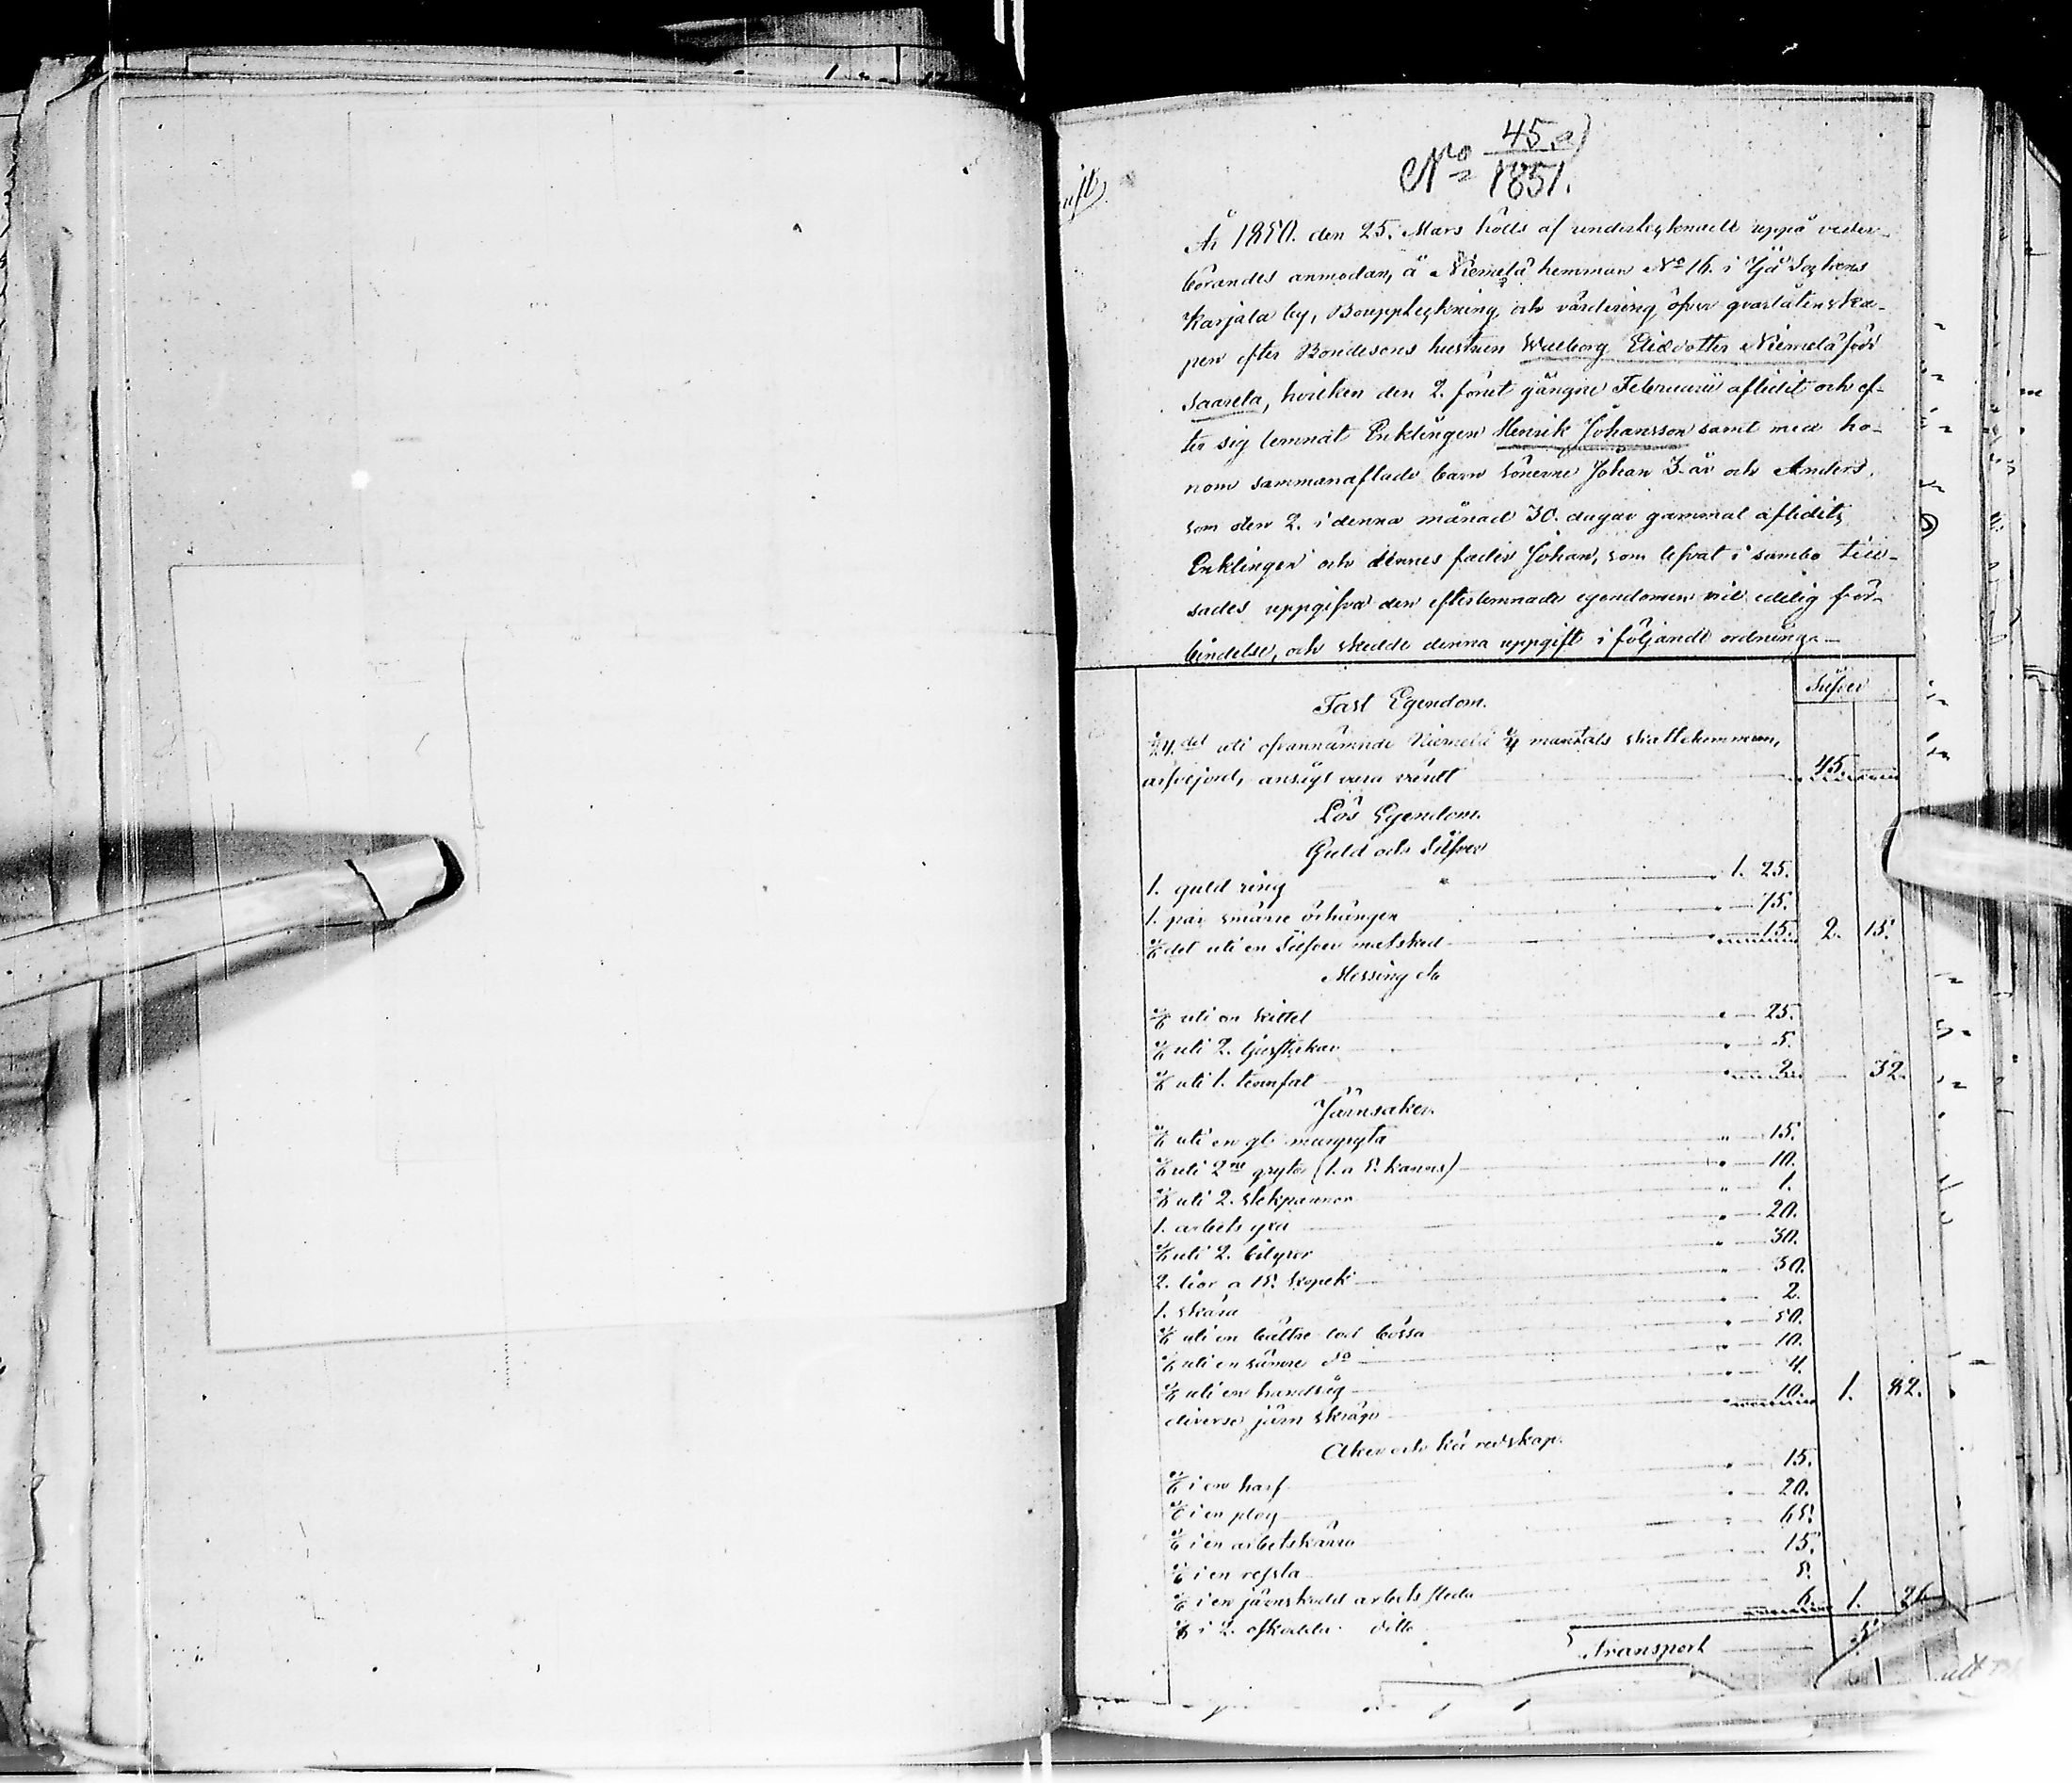 No 45 a)
1851.
År 1850. den 25. Mars hölls af undertecknade uppå veder-
börandes anmodan, å Niemelä hemman No 16. i Ijo Sockens
Karjala by, Bouppteckning och värdering öfver qvarlåtenska-
pen efter Bondesons hustrun Walborg Eliædotter Niemelä född
Saarela, hvilken den 2. förut gångne Februarii aflidit och ef-
ter sig lemnat Enklingen Henrik Johansson samt med ho-
nom sammanaflade barn sönerne Johan 3. år och Anders,
som den 2. i denna månad 30. dagar gammal aflidit,
Enklingen och dennes fader Johan, som lefvat i sambo till-
sades uppgifva den efterlemnade egendomen vid edelig för-
bindelse, och skedde denna uppgift i följande ordning:
Silfver
Fast Egendom.
det uti ofvannämnde Niemelä mantals skattehemman,
arfvejord, ansågs vara värdt 45.
Lös Egendom.
Guld och Silfver
1. guld ring 1. 25.
1. par smärre örhängen 75.
1/6 det uti en Silfver matsked 15. 2. 15.
Messing &a
1/6 uti en kittel 25.
1/6 uti 2. ljusstakar 5.
1/6 uti 1. tennfat 2. 32.
Järnsaker.
1/6 uti en gl. murgryta 15.
1/6 uti 2ne grytor (1. a 5. kannors) 10.
1/6 uti 2. stekpannor 1.
1. arbets yxa 20.
1/6 uti 2. bilyxor 30.
2. liar a 15. kopek 30.
1. skära 2.
1/6 uti en bättre lod bössa 50.
1/6 uti en sämre do 10.
1/6 uti en handsåg 4.
diverse järn skräp 10. 1. 82.
Åker och kör redskap.
1/6 i en harf 15.
1/6 i en plog 20.
1/6 i en arbetskärra 65.
1/6 i en ressla 15.
1/6 i en järnskodd arbets släda 5.
1/6 i 2. oskodda ditto 6. 1. 26.
Transport